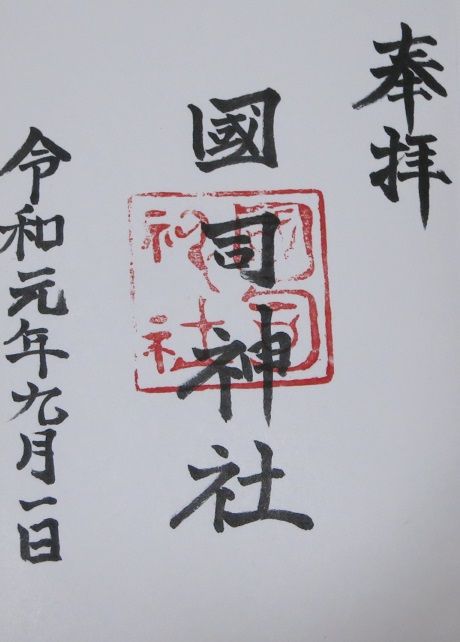 奉拝
國司神社
國司
神社
令和元年九月一日